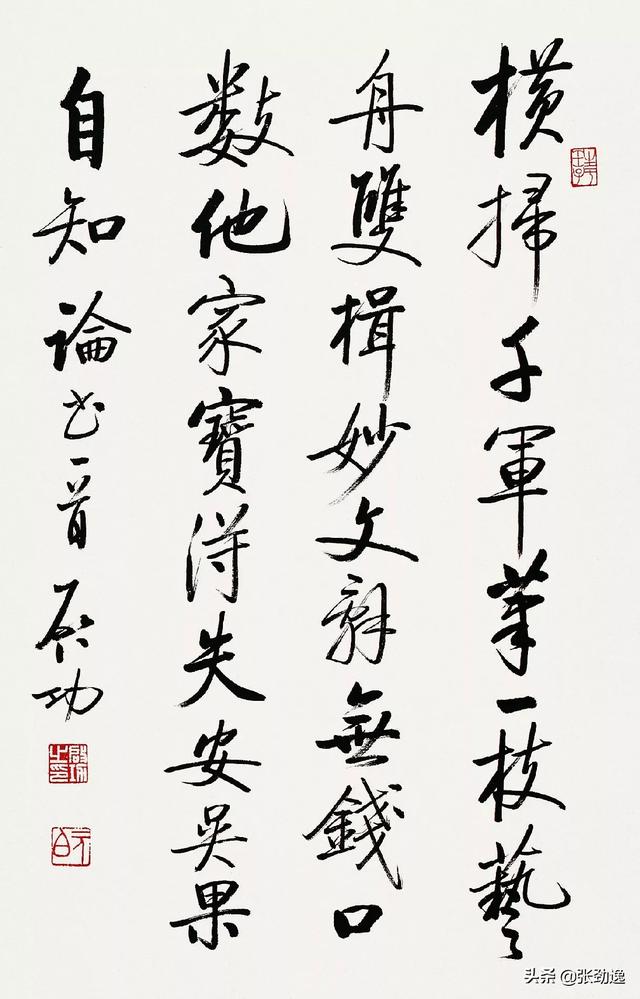 橫掃千軍筆一枝藝
舟雙楫妙文辭無錢口
數他家寶得失安吳果
自知論书一首 启功
啟功之印
元白
头条 @张劲逸